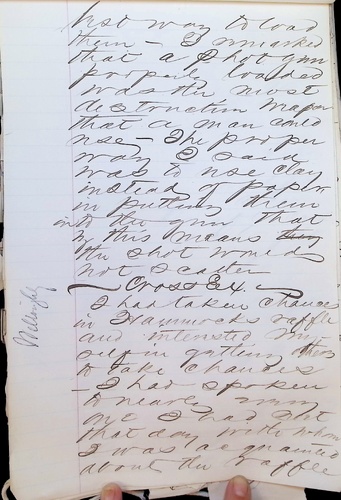 best way to load
them – I remarked
that a shot gun
properly loaded
was the most
destructive weapon
that a man could
use – The proper
way I said
was to use clay
instead of paper
in putting them
into the gun that
by this means they
the shot would
not scatter
Cross Ex.
I had taken chances
in Hammocks raffle
and interested my
self in getting others
to take chances
– I had spoken
to nearly every
one I had met
that day with whom
I was acquainted
about the raffle